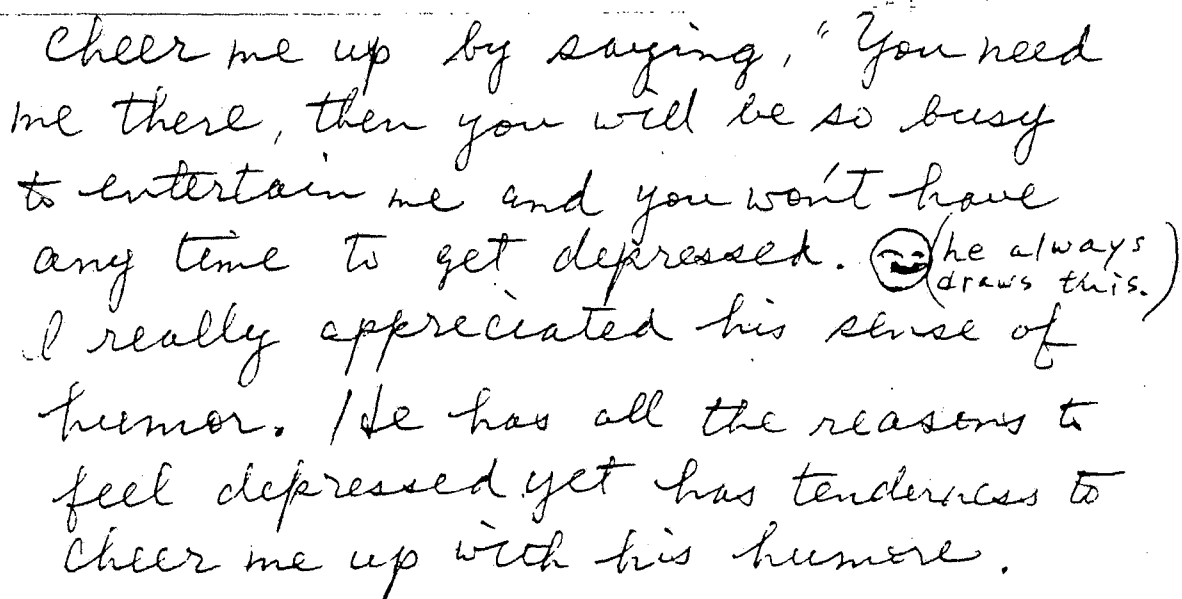 cheer me up by saying, "You need
me there, then you will be so busy
to entertain me and you won't have
any time to get depressed. (he always
draws this.)
I really appreciated his sense of
humor. He has all the reasons to
feel depressed yet has tenderness to
cheer me up with his humore.